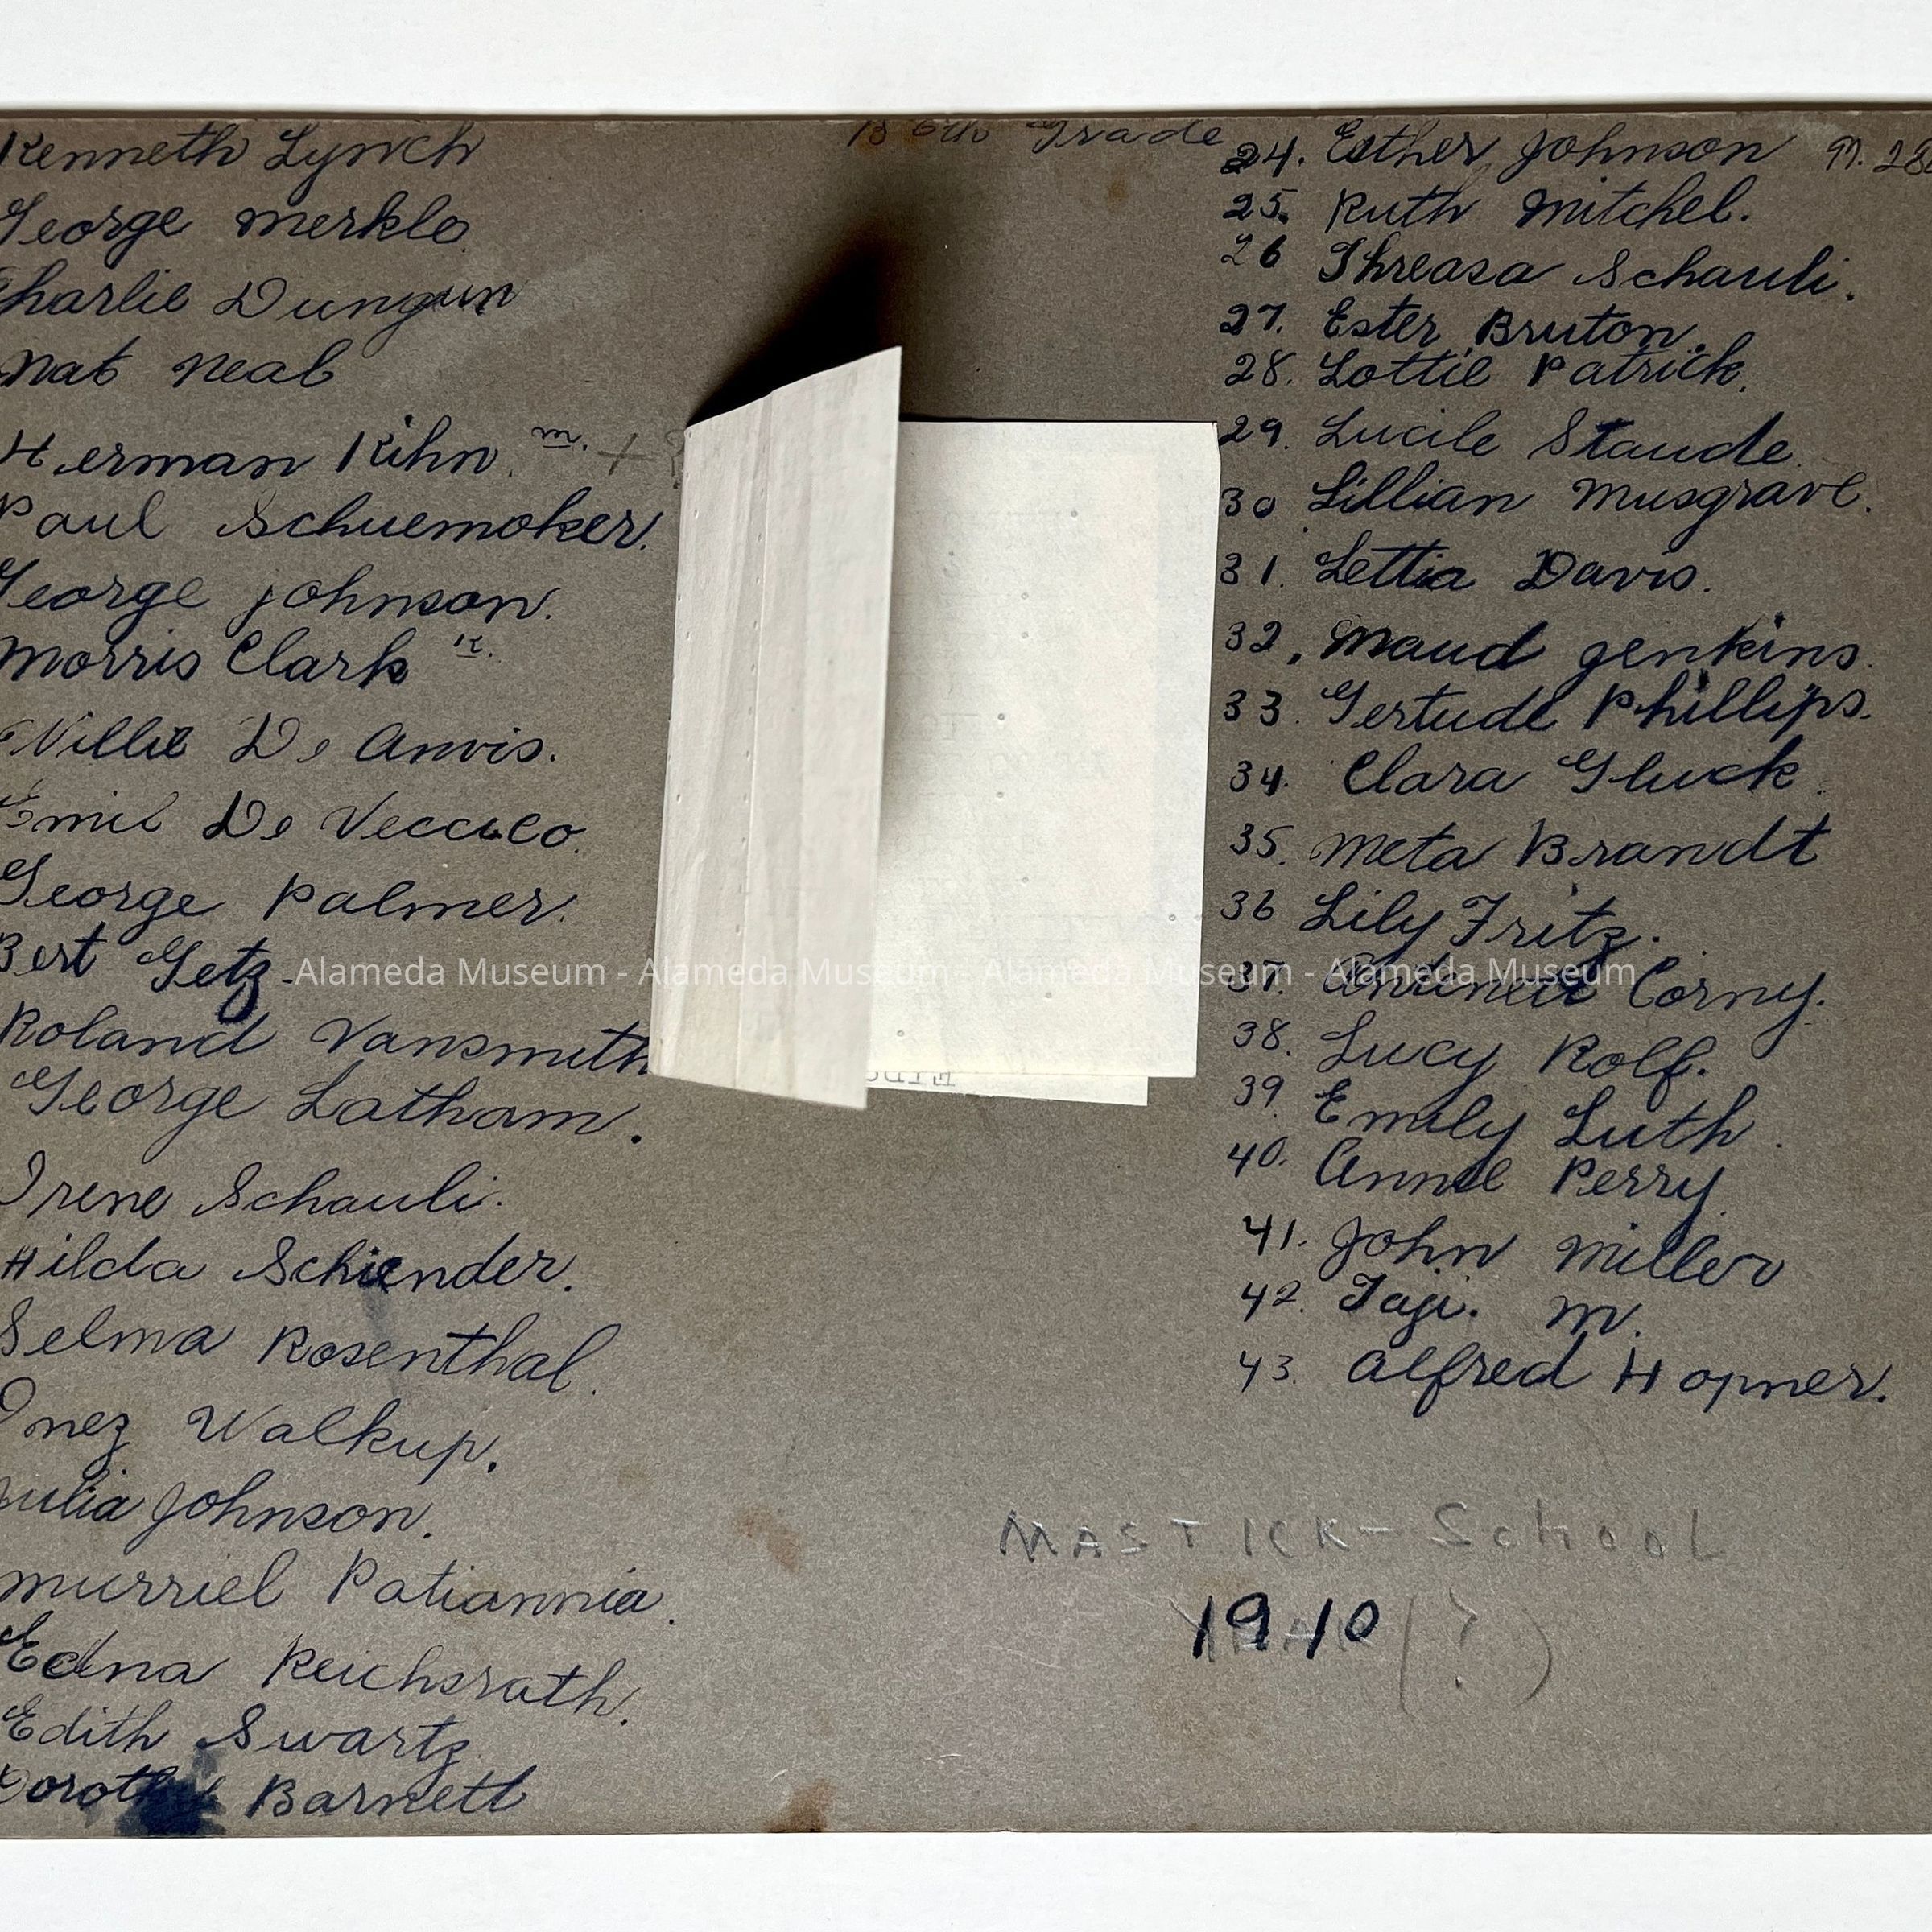 6th Grade
Kenneth Lynch
George Merkle
Charlie Dungun
Nat Neal
Herman Kihn. m. +?
Paul Schuemoker.
George Johnson.
Morris Clark K.
Willie De Anvis.
Emil De
George Palmer.
Bert Getz
Roland Vansmith
George Latham.
Irene Schauli.
Hilda Schiender.
Selma Rosenthal.
Inez Walkup.
Julia Johnson.
Murriel Patiannia.
Edna Reichsrath.
Edith Swartz
Dorothy Barnett
24. Esther Johnson
25. Ruth Mitchel.
26 Threasa Schauli.
27. Ester Bruton.
28. Lottie Patrick.
29. Lucile Staude.
30 Lillian Musgrave.
31. Lettia Davis.
32. Maud Genkins.
33. Gertude Phillips.
34. Clara Gluck.
35. Meta Brandt
36 Lily Fritz.
37. Corny.
38. Lucy Rolf.
39. Emily Luth.
40. Annie Perry
41. John Miller
42. Taji. M.
43. Alfred Hopner.
MASTICK-SchooL
1910 (?)
Alameda Museum - Alameda Museum - Alameda Museum - Alameda Museum